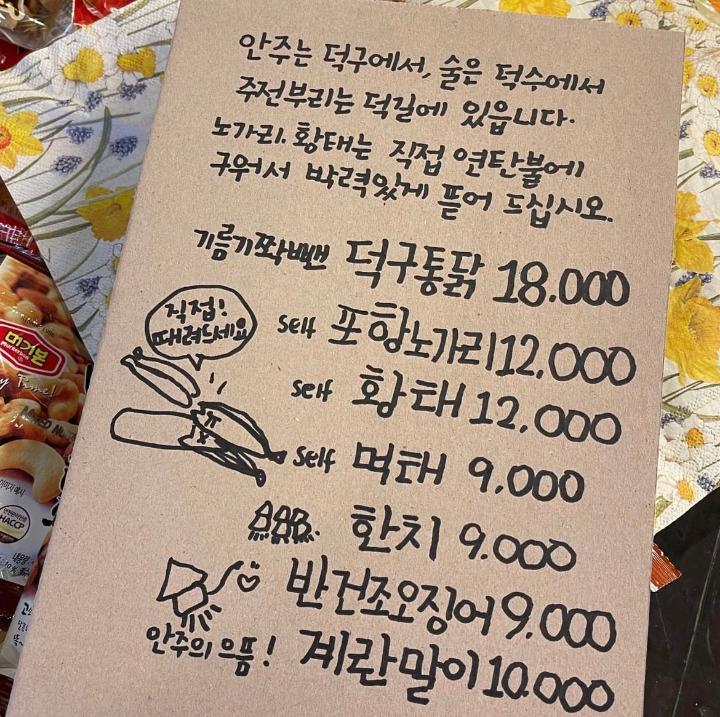 안주는 덕구에서, 술은 덕수에서
주전부리는 덕길에 있읍니다.
노가리. 황태는 직접 연탄불에
구워서 박력있게 뜯어 드십시오.
기름기쫘악뺀 덕구통닭 18.000
직접!
때려드세요
self 포항노가리 12.000
self 황태 12.000
self 먹태 9.000
한치 9.000
반건조오징어 9.000
안주의 으뜸! 계란말이 10.000
머거본
Time!
MIXED NUT
HACCP